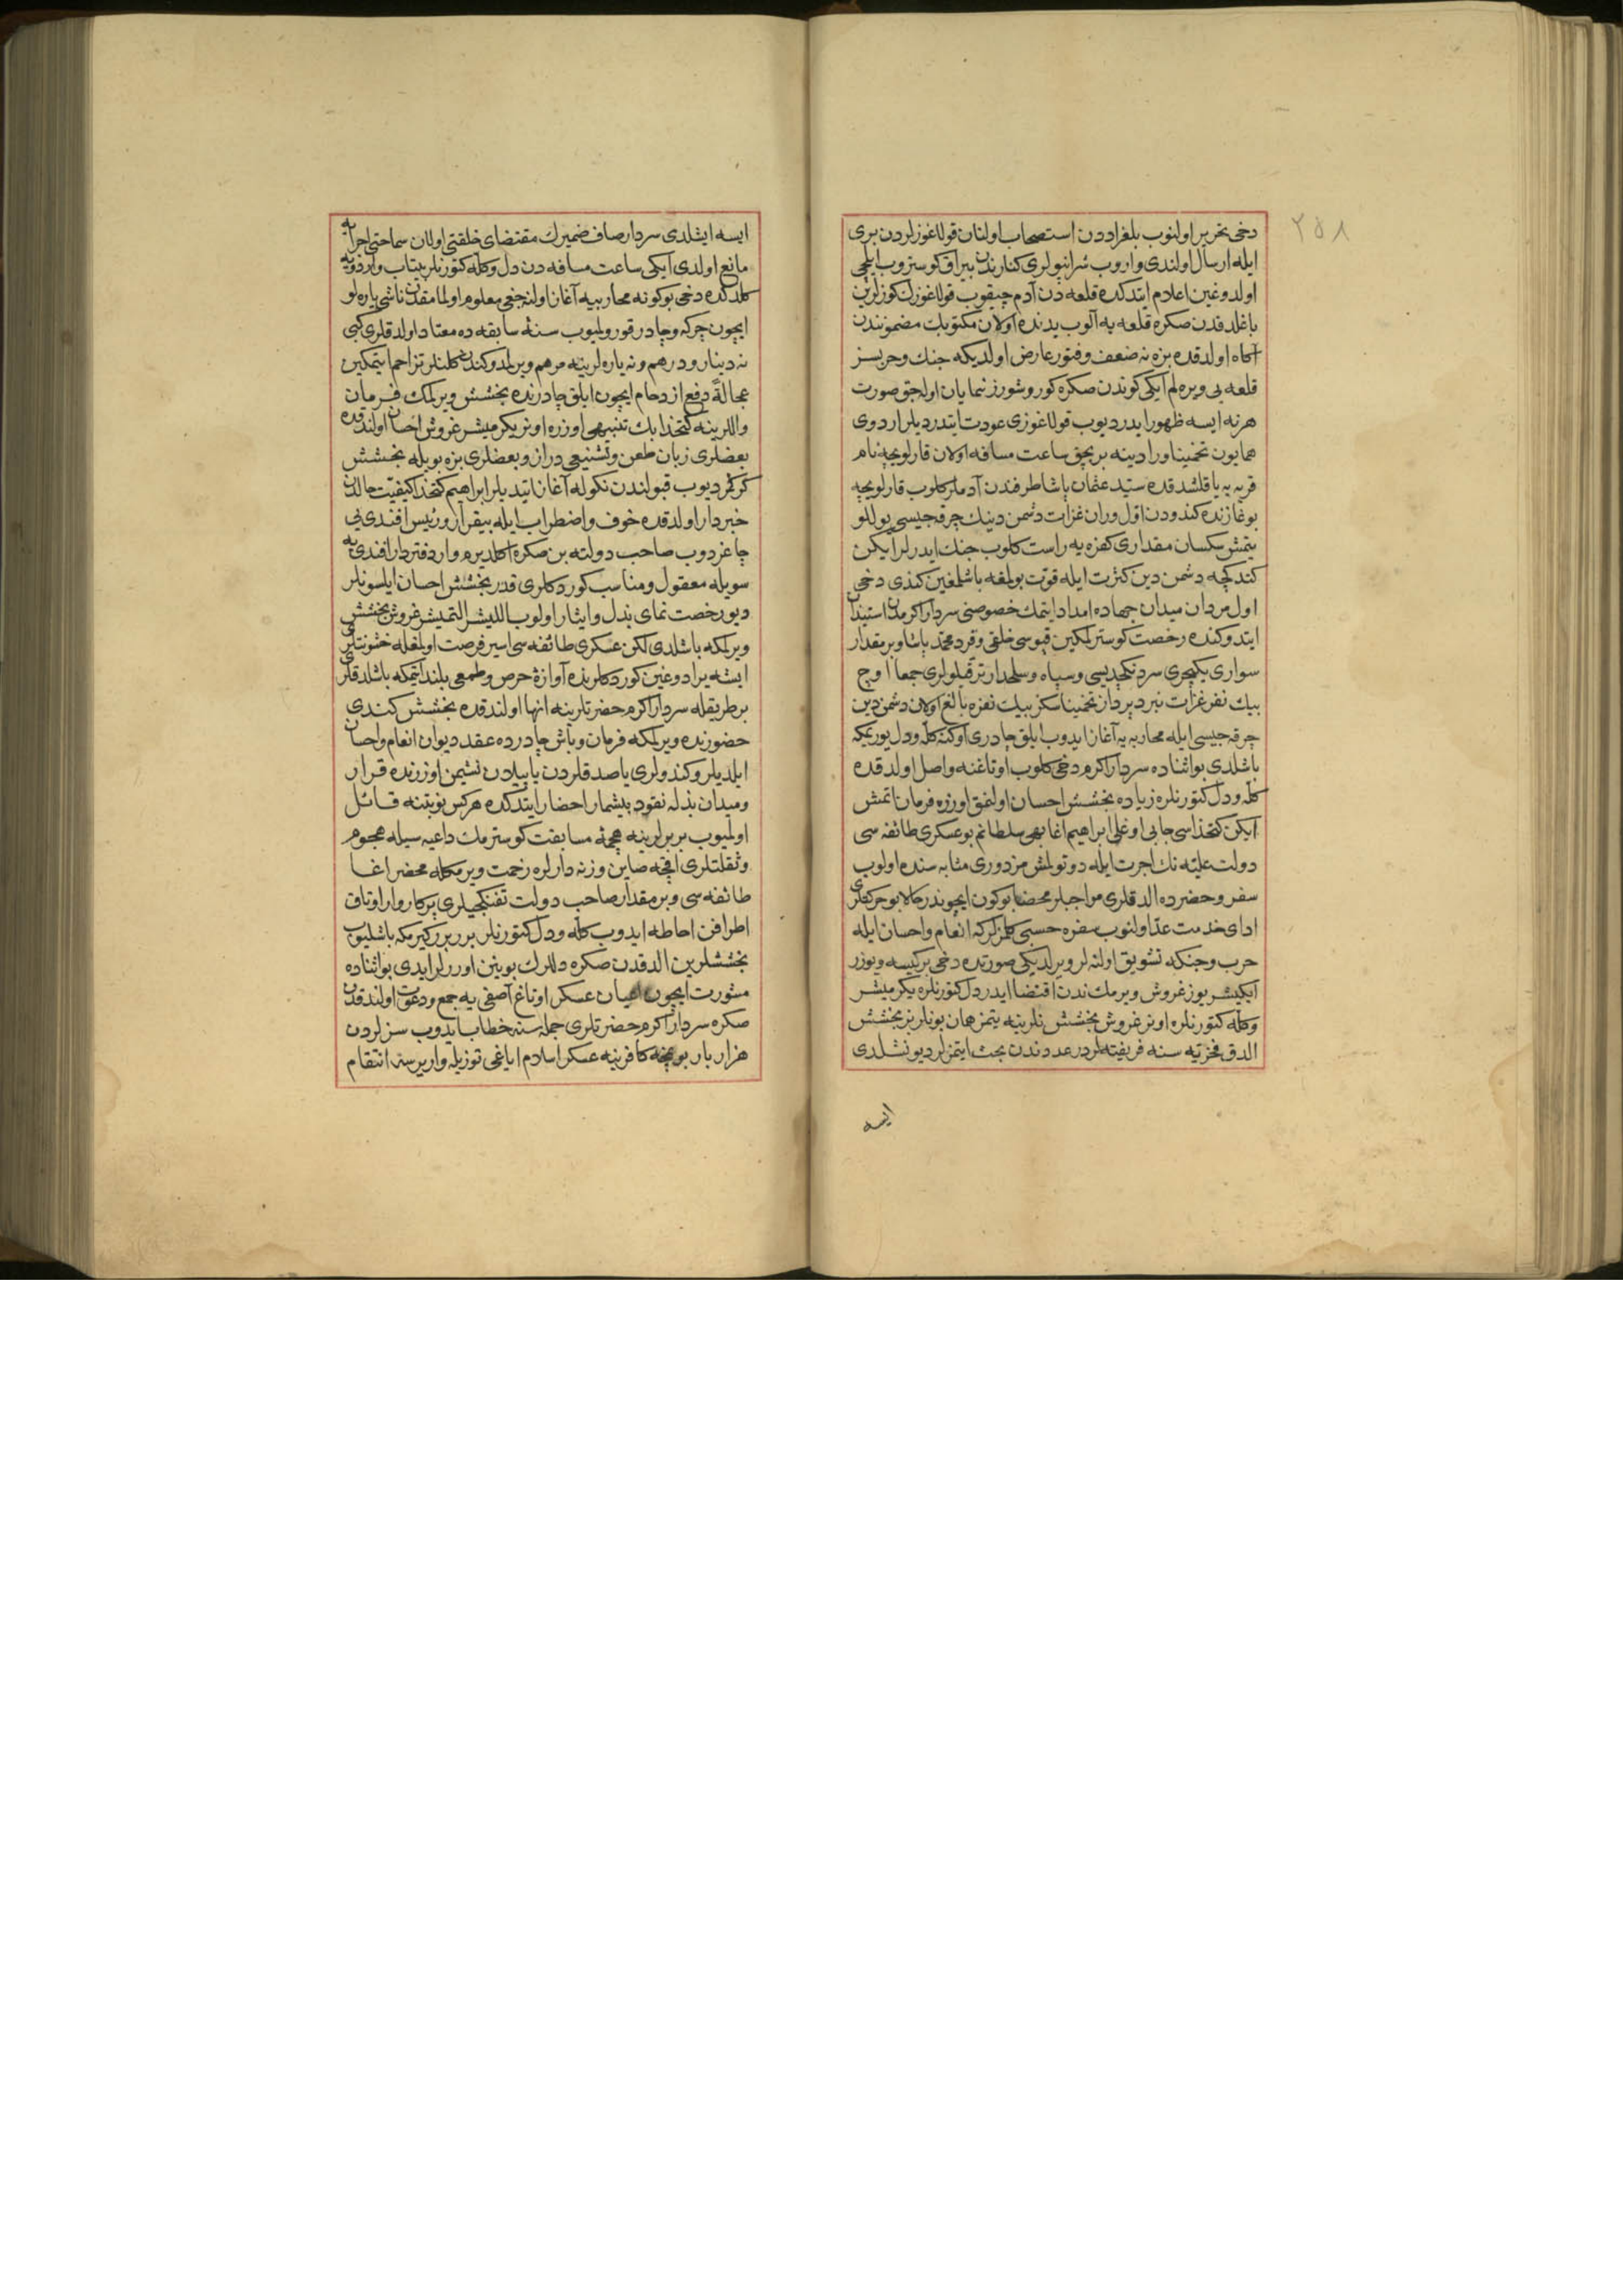 ٢٥٨
دخی تحریر اولنوب بلغراددن استصحاب اولنان قولاغوزلردن بری
ایله ارسال اولندی واروب شرانپولری کنارندن بیراق کوستروب ایلچی
اولدوغین اعلام ایتدکده قلعه دن آدم چیقوب قولاغوزک کوزلرین
باغلدقدن صکره قلعه یه آلوب یدنده اولان مکتوبک مضمونندن
آکاه اولدقده بزه نه ضعف وفتور عارض اولدیکه جنک وحربسز
قلعه یی ویره لم ایکی کوندن صکره کوروشورز نمایان اوله جق صورت
هر نه ایسه ظهور ایدر دیوب قولاغوزی عودت ایتدردیلر اردوی
همایون تخمینا ورادینه بر بچق ساعت مسافه اولان قارلویچه نام
قریه یه یاقلشدقده سید عثمان پاشا طرفندن آدملر کلوب قارلویچه
بوغازنده کندودن اول وران غزات دشمن دینک چرقه جیسی یوللو
یتمش سکسان مقداری کفره یه راست کلوب جنک ایدرلر ایکن
کتدکجه دشمن دین کثرت ایله قوت بولمغه باشلمغین کندی دخی
اول مردان میدان جهاده امداد ایتمک خصوصنی سردار اکرمدن استیذان
ایتدوکنده رخصت کوسترلمکین قپوسی خلقی وقرد محمد پاشا وبر مقدار
سواری یکیچری سردنکچدیسی وسپاه وسلحدار ترقیلولری جمعا اوچ
بیک نفر غزات نبرد پرداز تخمینا سکز بیک نفره بالغ اولان دشمن دین
چرقه جیسی ایله محاربه یه آغاز ایدوب ایلق چادری اوکنه کله ودل یوریمکه
باشلدی بو اثناده سردار اکرم دخی کلوب اوتاغنه واصل اولدقده
کله ودل کتورنلره زیاده بخشش احسان اولنمق اوزره فرمان اتمش
ایکن کتخداسی جابی اوغلی ابراهیم اغا بهی سلطانم بو عسکری طائفه سی
دولت علیه نک اجرت ایله دوتولمش مزدوری مثابه سنده اولوب
سفر وحضرده الدقلری مواجبلر محضا بوکون ایچوندر حالا بو حرکتلری
ادای خدمت عد اولنوب سفره حسبی کلمزلر که انعام واحسان ایله
حرب وجنکه تشویق اولنه لر ویرلدیکی صورتده دخی بر کیسه ویوزر
ایکیشر یوز غروش ویرمک ندن اقتضا ایدر دل کتورنلره یکرمیشر
وکله کتورنلره اونر غروش بخشش نلرینه یتمز همان بونلر بز بخشش
الدق فخریه سنه فریفته لردر عددندن بحث ایتمزلر دیو نشلدی
ایسه
ایسه ایشلدی سردار صاف ضمیرک مقتضای خلقتی اولان سماحتی اجرایه
مانع اولدی ایکی ساعت مسافه دن دل وکله کتورنلر بیتاب واردویه
کلدکده دخی بوکونه محاربه یه آغاز اولنه جغی معلوم اولمامقدن ناشی یاره لو
ایچون چرکه وچادر قورولمیوب سنه سابقه ده معتاد اولدقلری کبی
نه دینار ودرهم ونه یاره لرینه مرهم ویرلمدوکندن کلنلر تزاحم ایتمکین
عجالة دفع ازدحام ایچون ایلق چادرنده بخشش ویرلمک فرمان
واللرینه کتخدا بک تنبیهی اوزره اونر یکرمیشر غروش احسان اولندقده
بعضلری زبان طعن وتشنیعی دراز وبعضلری بزه بویله بخشش
کرکمز دیوب قبولندن نکوله آغاز ایتدیلر ابراهیم کتخدا کیفیت حالدن
خبردار اولدقده خوف واضطراب ایله بیقرار ورئیس افندی یی
چاغردوب صاحب دولته بن صکره اکلدیرم وار دفتردار افندی یه
سویله معقول ومناسب کوردکلری قدر بخشش احسان ایلسونلر
دیو رخصت نمای بذل وایثار اولوب اللیشر التمیشر غروش بخشش
ویرلمکه باشلدی لکن عسکری طائفه سی اسیر فرصت اولمغله خشونتلری
ایشه یرادوغین کوردکلرنده آوازه حرص وطمعی بلند ایتمکه باشلدقلری
بر طریقله سردار اکرم حضرتلرینه انها اولندقده بخشش کندی
حضورنده ویرلمکه فرمان وباش چادرده عقد دیوان انعام واحسان
ایلدیلر وکندولری یاصدقلردن یاپیلان نشیمن اوزرنده قرار
ومیدان بذله نقود بیشمار احضار ایتدکده هرکس نوبتنه قائل
اولمیوب بربرلرینه هجمه مسابقت کوسترمک داعیه سیله هجوم
وثقلتلری اقچه صاین وزنه دارلره زحمت ویرمکله محضر اغا
طائفه سی وبر مقدار صاحب دولت تفنکچیلری پرکاروار اوتاق
اطرافن احاطه ایدوب کله ودل کتورنلر برر برر کیرمکه باشلیوب
بخششلرین الدقدن صکره دللرک بوینین اوررلر ایدی بو اثناده
مشورت ایچون اعیان عسکر اوتاغ آصفی یه جمع ودعوت اولندقدن
صکره سردار اکرم حضرتلری جمله سنه خطاب ایدوب سزلردن
هزار بار بویچه کافرینه عسکر اسلام ایاغی توزیله واریرسه انتقام